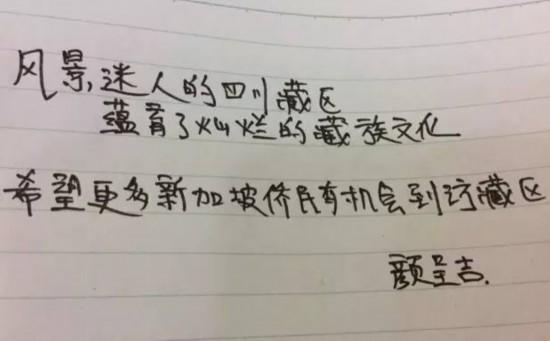 风景迷人的四川藏区
蕴育了灿烂的藏族文化
希望更多新加坡侨民有机会到访藏区
颜呈吉.